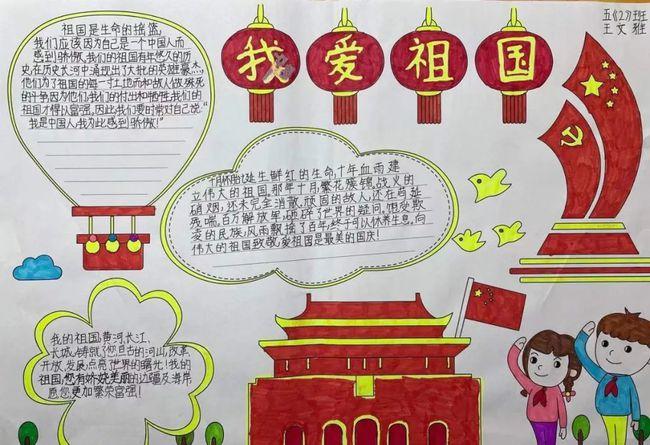 五(2)班
王文雅
我爱祖国
祖国是生命的摇篮,
我们应该因为自己是一个中国人而
感到骄傲,我们的祖国有年悠久的历
史,在历史长河中涌现出了大批的英雄豪杰,
他们为了祖国的每一寸土地而和敌人做殊死
的斗争,因为他们,我们的付出和牺牲,我们的
祖国才得以富强,因此,我们要时常对自己说:“
我是中国人,我为此感到骄傲!”
十月怀胎诞生鲜红的生命,十年血雨建
立伟大的祖国,那年十月,繁花簇锦,战火的
硝烟,还未完全消散,顽固的敌人,还在与延
残喘,百万解放军,砸碎了世界的疑问,饱受欺
凌的民族,风雨飘摇了百年,终于可以休养生息,向
伟大的祖国致敬,爱祖国是最美的国庆!
我的祖国,黄河长江、
长城,铸就了您亘古的河山,改革
开放,发展,点亮世界的曙光!我的
祖国,您有娇娆美丽的边疆及海岸
愿您更加繁荣富强!